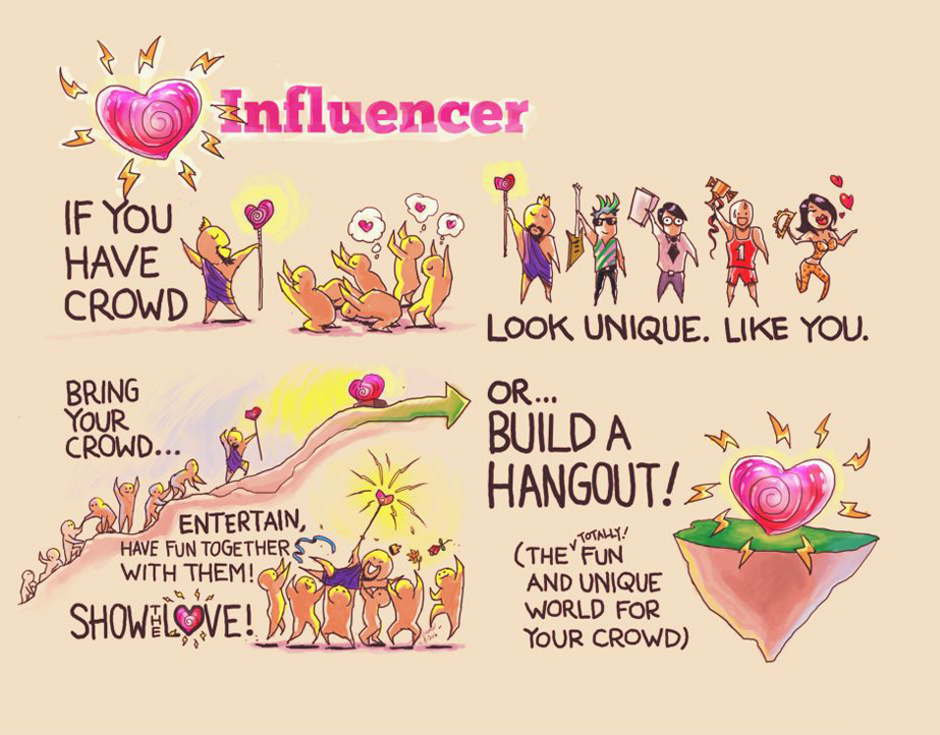 Influencer
IF YOU
HAVE
CROWD
1
LOOK UNIQUE. LIKE YOU.
BRING
YOUR
CROWD...
ENTERTAIN,
HAVE FUN TOGETHER
WITH THEM!
SHOW THE LOVE!
OR...
BUILD A
HANGOUT!
(THE TOTALLY! FUN
AND UNIQUE
WORLD FOR
YOUR CROWD)